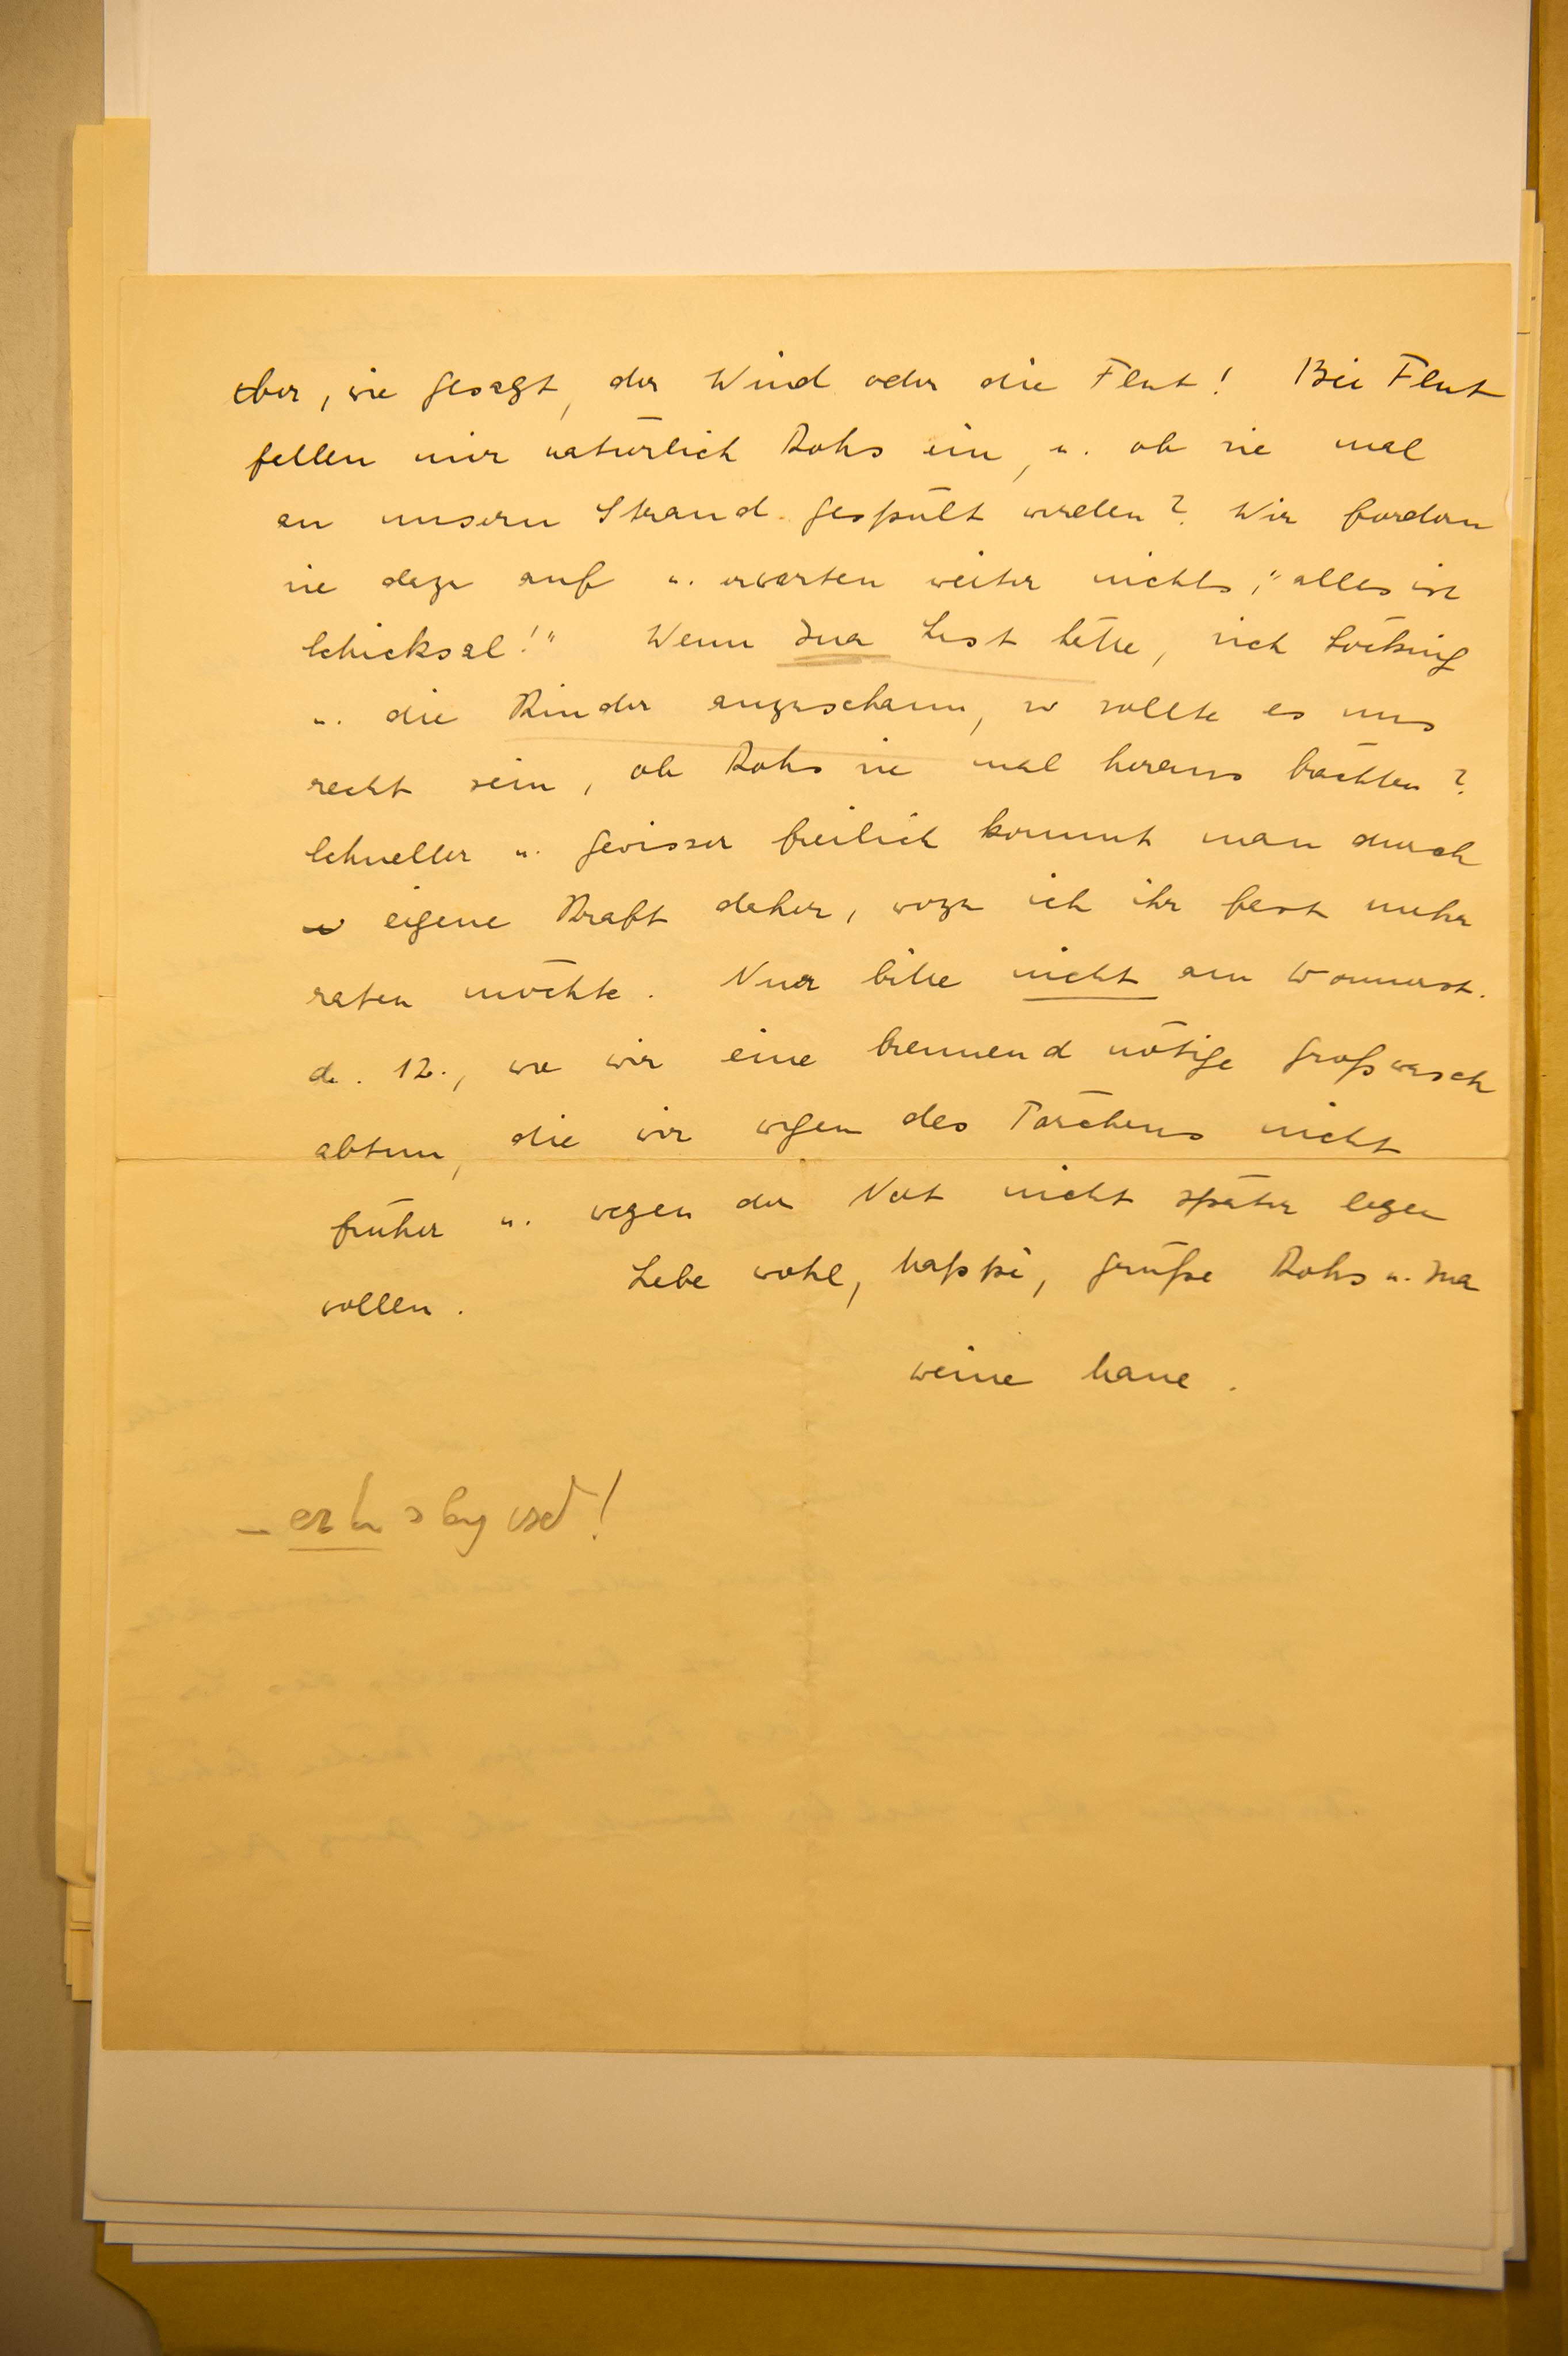 aber, wie gesagt, der Wind oder die Flut! Bei Flut
fallen mir natürlich Rohs ein, u. ob sie mal
an unsern Strand gespült werden? Wir fordern
sie dazu auf u. erwarten weiter nichts, "alles ist
Schicksal!" Wenn Ina Lust hätte, sich
u. die Kinder anzuschaun, so sollte es uns
recht sein, ob Rohs sie mal heraus brächten?
Schneller u. gewisser freilich kommt man durch
eigene Kraft daher, wozu ich ihr fast mehr
raten möchte. Nur bitte nicht am Donnerst.
d. 12., wo wir eine brennend nötige Großwasch
abtun, die wir wegen des nicht
früher u. wegen der Not nicht später legen
wollen. Lebe wohl, grüße Rohs u. Ina